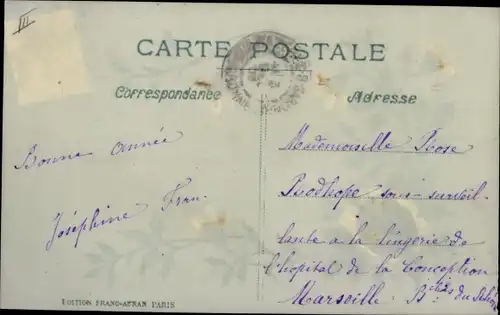 III
CARTE POSTALE
Correspondance
Adresse
Bonne année
Joséphine Fran.
Mademoiselle Rose
Rodhope sous-surveil-
lante a la lingerie de
l'hopital de la Conception
Marseille. B.ches du Rhône
EDITION FRANC-AFRAN PARIS